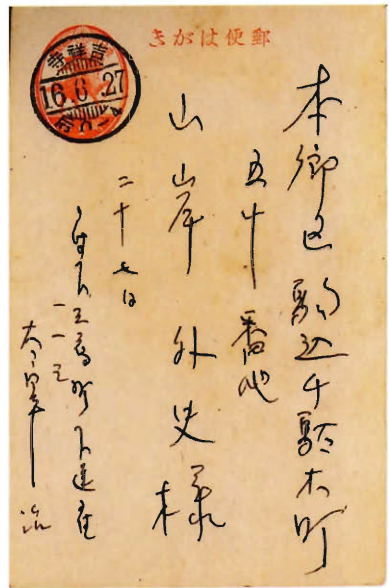 郵便はがき
吉祥寺
16.6.27
本郷区駒込千駄木町
五十番地
山岸外史様
二十七日
府下三鷹町下連雀
一一三
太宰治